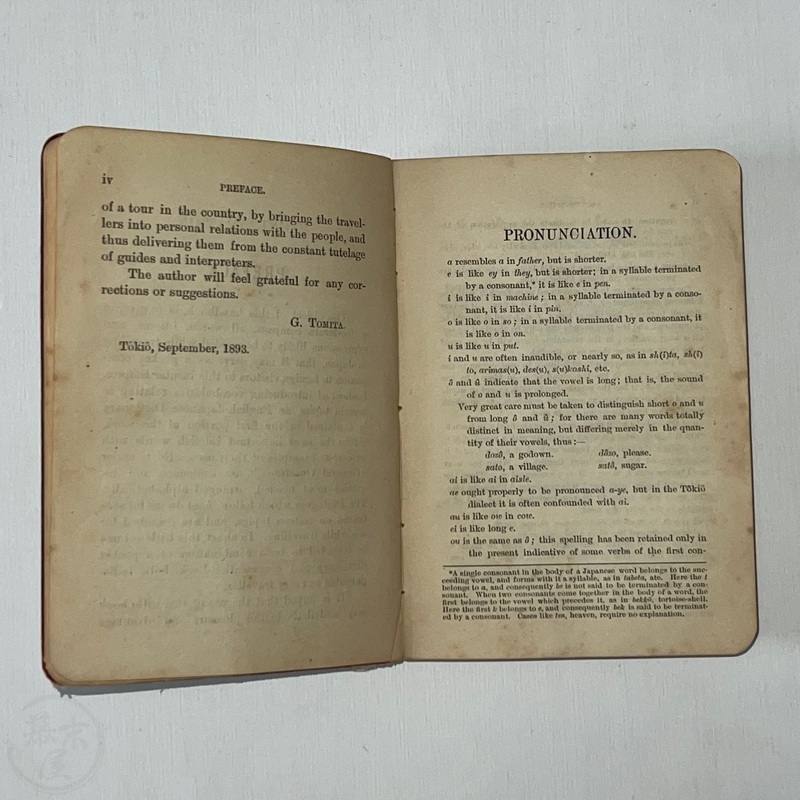 iv
PREFACE.
of a tour in the country, by bringing the travel-
lers into personal relations with the people, and
thus delivering them from the constant tutelage
of guides and interpreters.
The author will feel grateful for any cor-
rections or suggestions.
G. TOMITA.
Tōkiō, September, 1893.
PRONUNCIATION.
a resembles a in father, but is shorter.
e is like ey in they, but is shorter; in a syllable terminated
by a consonant,* it is like e in pen.
i is like i in machine; in a syllable terminated by a conso-
nant, it is like i in pin.
o is like o in so; in a syllable terminated by a consonant, it
is like o in on.
u is like u in put.
i and u are often inaudible, or nearly so, as in sh(i)ta, sh(i)
to, arimas(u), des(u), s(u)koshi, etc.
ō and ū indicate that the vowel is long; that is, the sound
of o and u is prolonged.
Very great care must be taken to distinguish short o and u
from long ō and ū; for there are many words totally
distinct in meaning, but differing merely in the quan-
tity of their vowels, thus:—
dozō, a godown. dōzo, please.
sato, a village. satō, sugar.
ai is like ai in aisle.
ae ought properly to be pronounced a-ye, but in the Tōkiō
dialect it is often confounded with ai.
au is like ow in cow.
ei is like long e.
ou is the same as ō; this spelling has been retained only in
the present indicative of some verbs of the first con-
*A single consonant in the body of a Japanese word belongs to the suc-
ceeding vowel, and forms with it a syllable, as in tabeta, ate. Here the t
belongs to a, and consequently be is not said to be terminated by a con-
sonant. When two consonants come together in the body of a word, the
first belongs to the vowel which precedes it, as in bekkō, tortoise-shell.
Here the first k belongs to e, and consequently bek is said to be terminat-
ed by a consonant. Cases like ten, heaven, require no explanation.